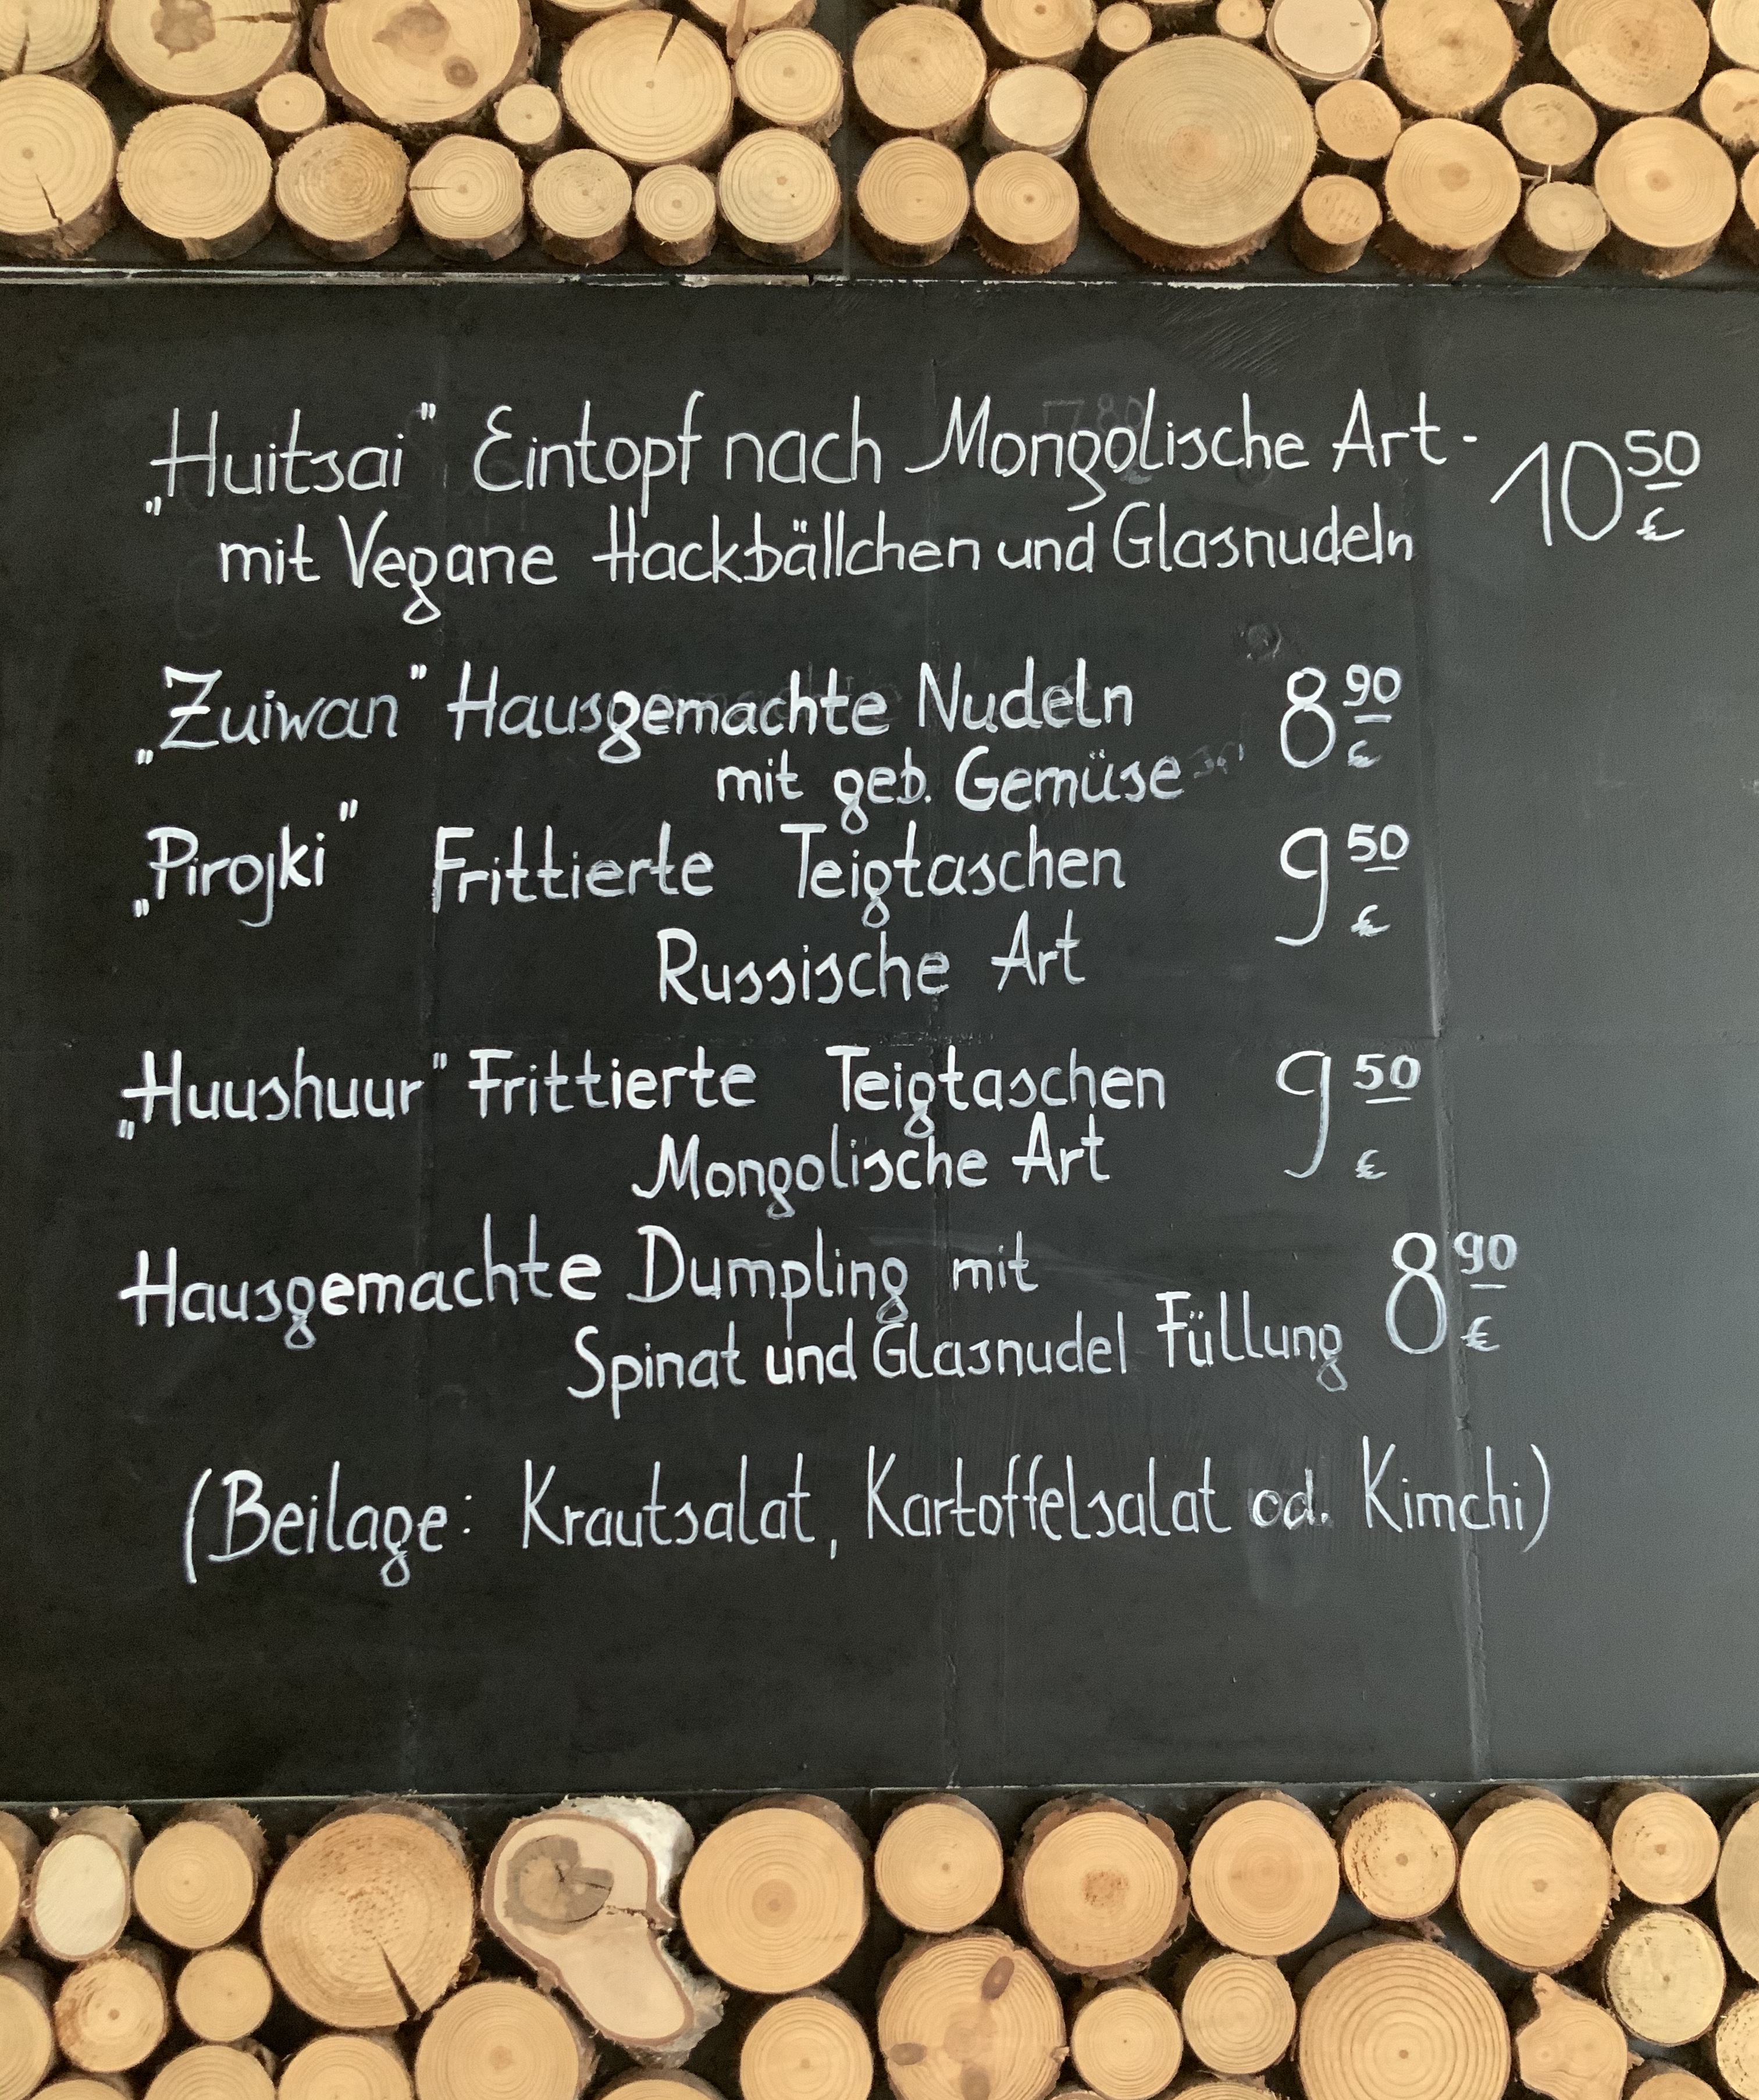 „Huitsai" Eintopf nach Mongolische Art - 10 50 €
mit Vegane Hackbällchen und Glasnudeln
„Zuiwan" Hausgemachte Nudeln 8 90 €
mit geb. Gemüse
„Pirojki" Frittierte Teigtaschen 9 50 €
Russische Art
„Huushuur" Frittierte Teigtaschen 9 50 €
Mongolische Art
Hausgemachte Dumpling mit 8 90 €
Spinat und Glasnudel Füllung
(Beilage: Krautsalat, Kartoffelsalat od. Kimchi)